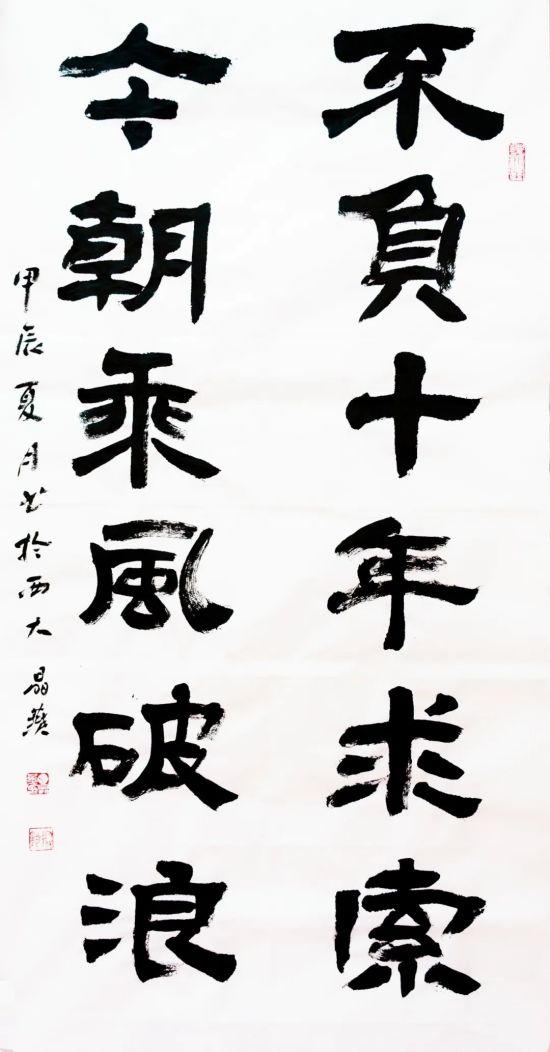 不負十年求索
今朝乘風破浪
甲辰夏月书於西大 晶